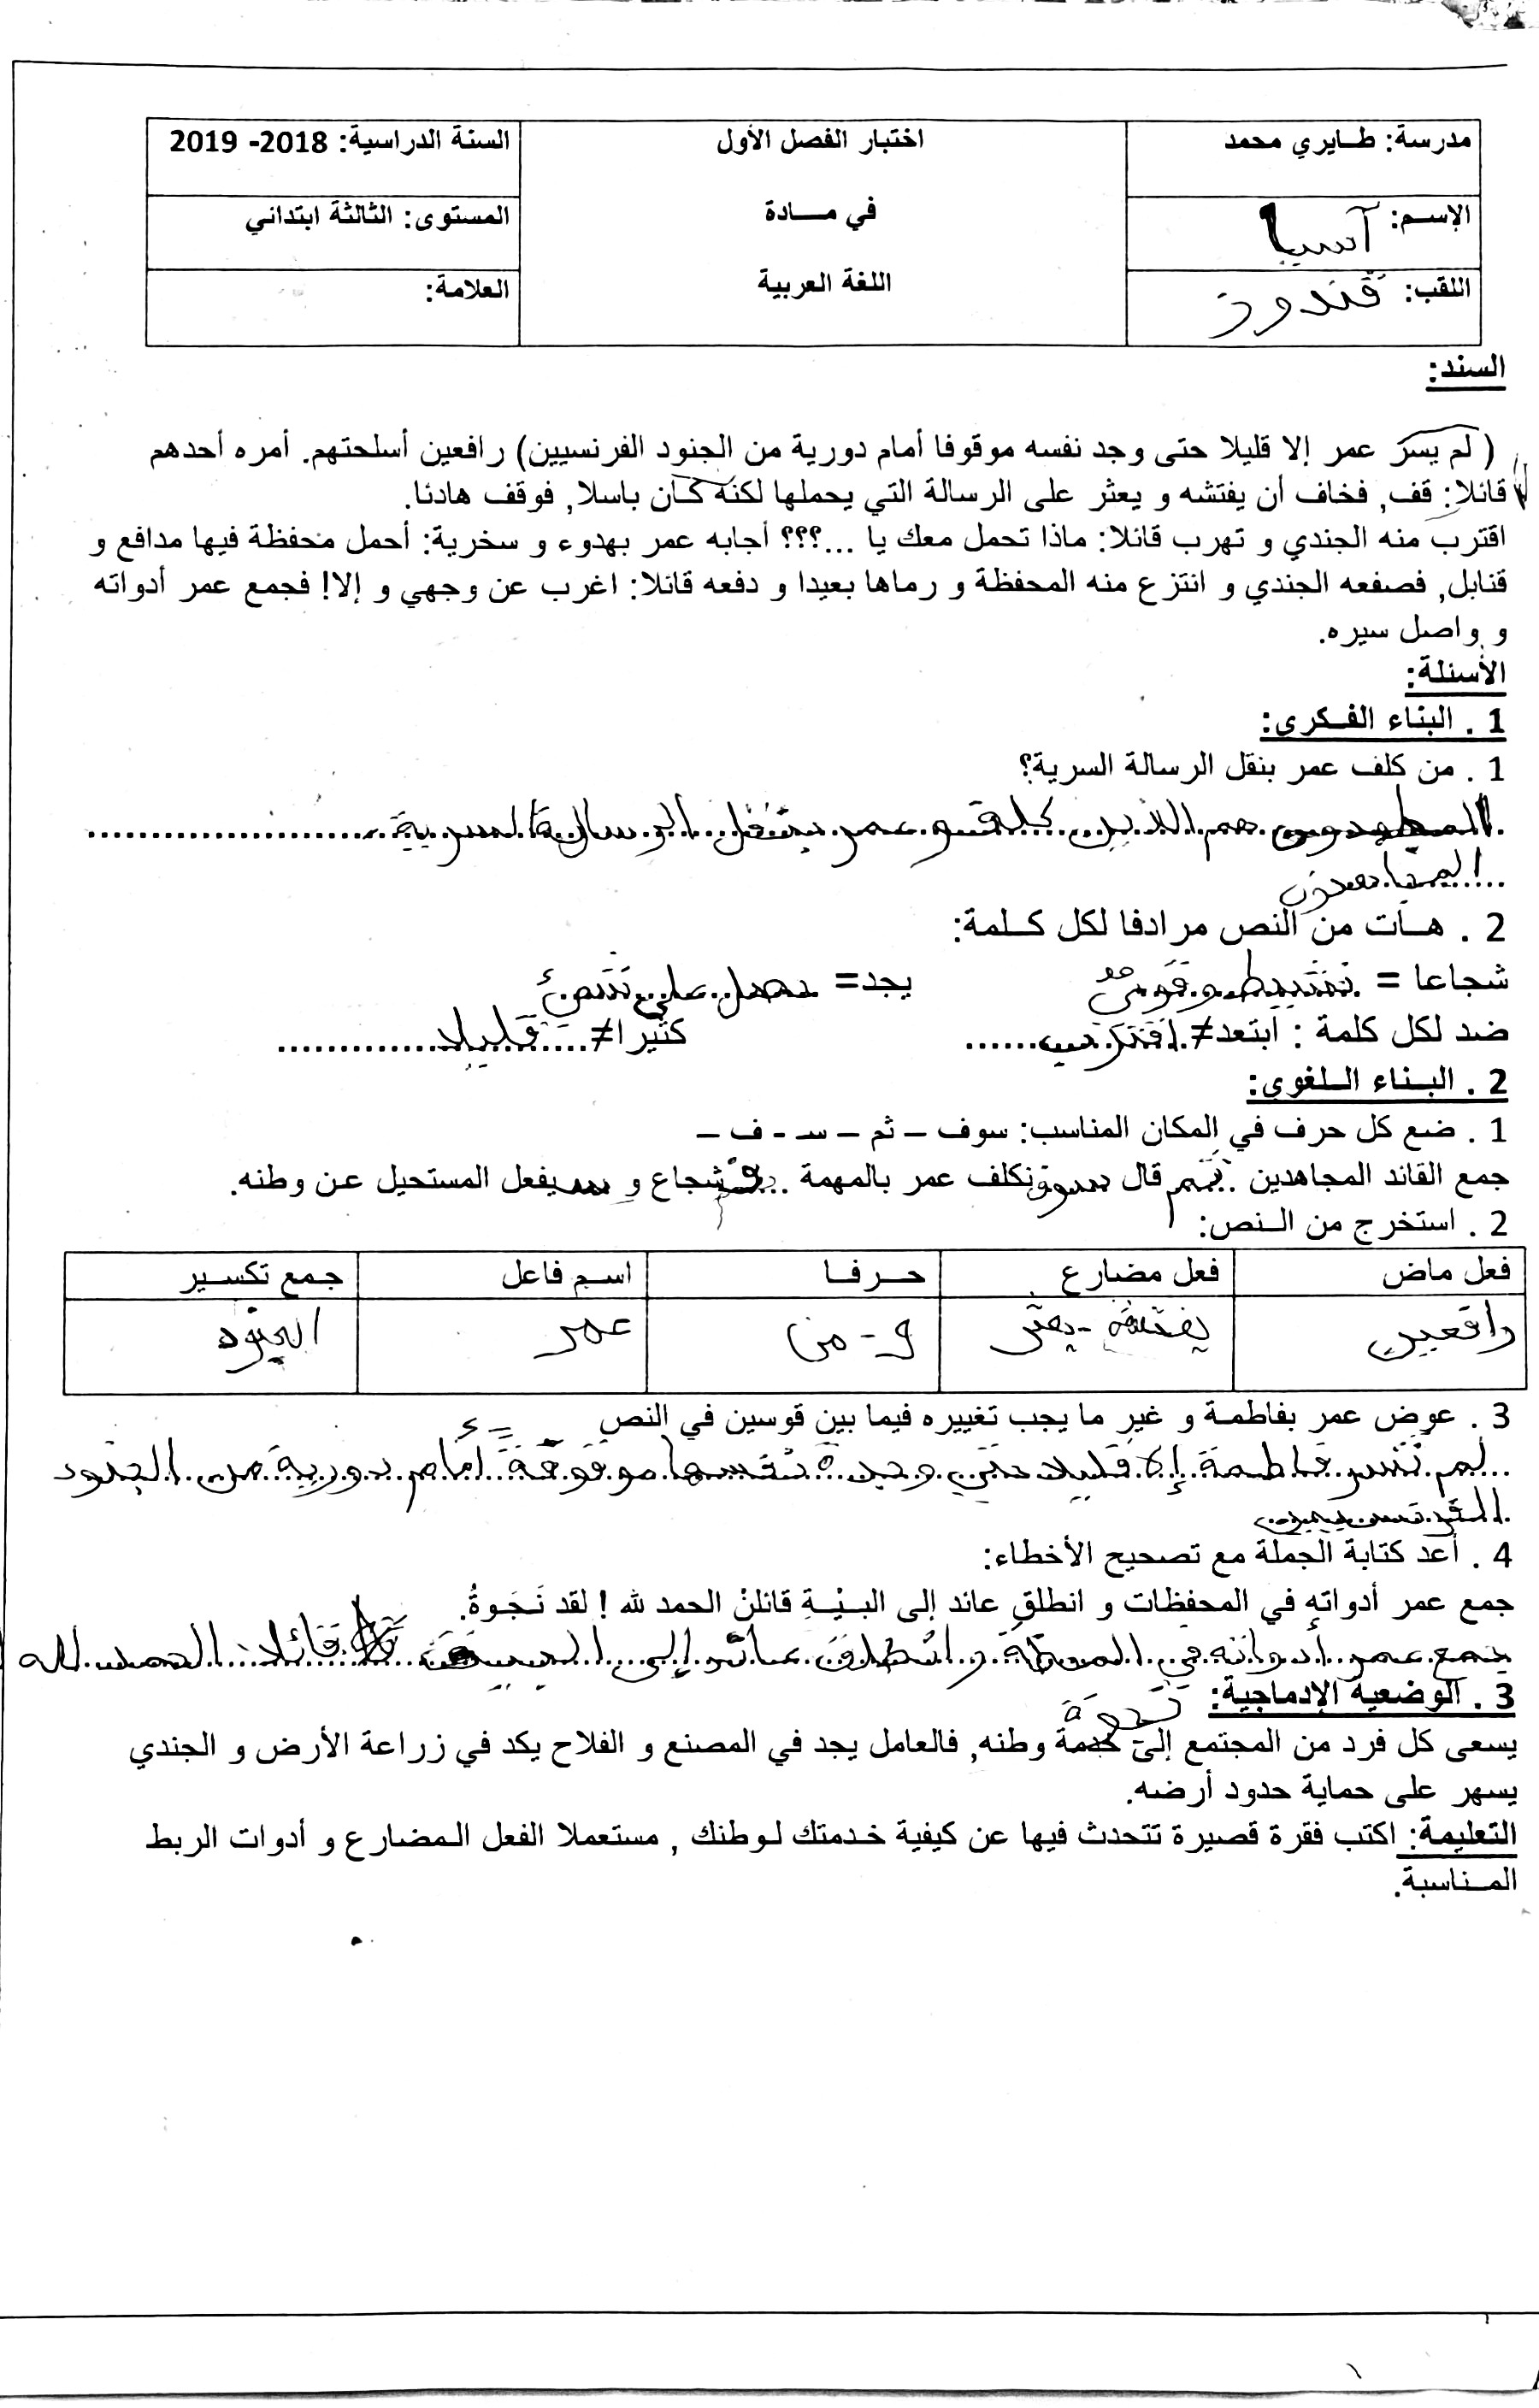 مدرسة: طـايري محمد
اختبار الفصل الأول
السنة الدراسية: 2018- 2019
الإسـم: آسيا
في مـــادة
المستوى: الثالثة ابتدائي
اللقب: قندوز
اللغة العربية
العلامة:
السند:
( لم يسر عمر إلا قليلا حتى وجد نفسه موقوفا أمام دورية من الجنود الفرنسيين) رافعين أسلحتهم. أمره أحدهم
قائلا: قف, فخاف أن يفتشه و يعثر على الرسالة التي يحملها لكنه كـان باسلا, فوقف هادئا.
اقترب منه الجندي و تهرب قائلا: ماذا تحمل معك يا ...؟؟؟ أجابه عمر بهدوء و سخرية: أحمل محفظة فيها مدافع و
قنابل, فصفعه الجندي و انتزع منه المحفظة و رماها بعيدا و دفعه قائلا: اغرب عن وجهي و إلا! فجمع عمر أدواته
و واصل سيره.
الأسئلة:
1 . البناء الفـكري:
1 . من كلف عمر بنقل الرسالة السرية؟
هم اللذين كلفو عمر بنقل الرسالة السرية
المجاهدون
2 . هـات من النص مرادفا لكل كـلمة:
شجاعا = نشيط وقوي يجد= يحصل على شيئ
ضد لكل كلمة : ابتعد≠ اقترب ...... كثيرا≠ قليلا
2 . البـناء الـلغوي:
1 . ضع كل حرف في المكان المناسب: سوف – ثم – سـ - ف –
جمع القائد المجاهدين ثم قال سوف نكلف عمر بالمهمة ... فـ شجاع و سـ يفعل المستحيل عن وطنه.
2 . استخرج من الـنص:
فعل ماض فعل مضارع حـرفـا اسـم فاعل جـمع تكسـير
رافعين يفتشه - يعثر و - من عمر الجنود
3 . عوض عمر بفاطمـة و غير ما يجب تغييره فيما بين قوسين في النص
لم تسر فاطمة إلا قليلا حتى وجدة نفسها موقوفة أمام دورية من الجنود
الفرنسيين
4 . أعد كتابة الجملة مع تصحيح الأخطاء:
جمع عمر أدواتهِ في المحفظات و انطلقِ عائد إلى البـيْـةِ قائلنْ الحمد لله ! لقد نَـجَـوةُ.
جمع عمر أدواته في المحفظة و انطلق عائد إلى البيت قائلا: الحمد لله
3 . الوضعية الإدماجية: نجوة
يسعى كل فرد من المجتمع إلى خدمة وطنه, فالعامل يجد في المصنع و الفلاح يكد في زراعة الأرض و الجندي
يسهر على حماية حدود أرضه.
التعليمة: اكتب فقرة قصيرة تتحدث فيها عن كيفية خـدمتك لـوطنك , مستعملا الفعل الـمضارع و أدوات الربط
المـناسبة.